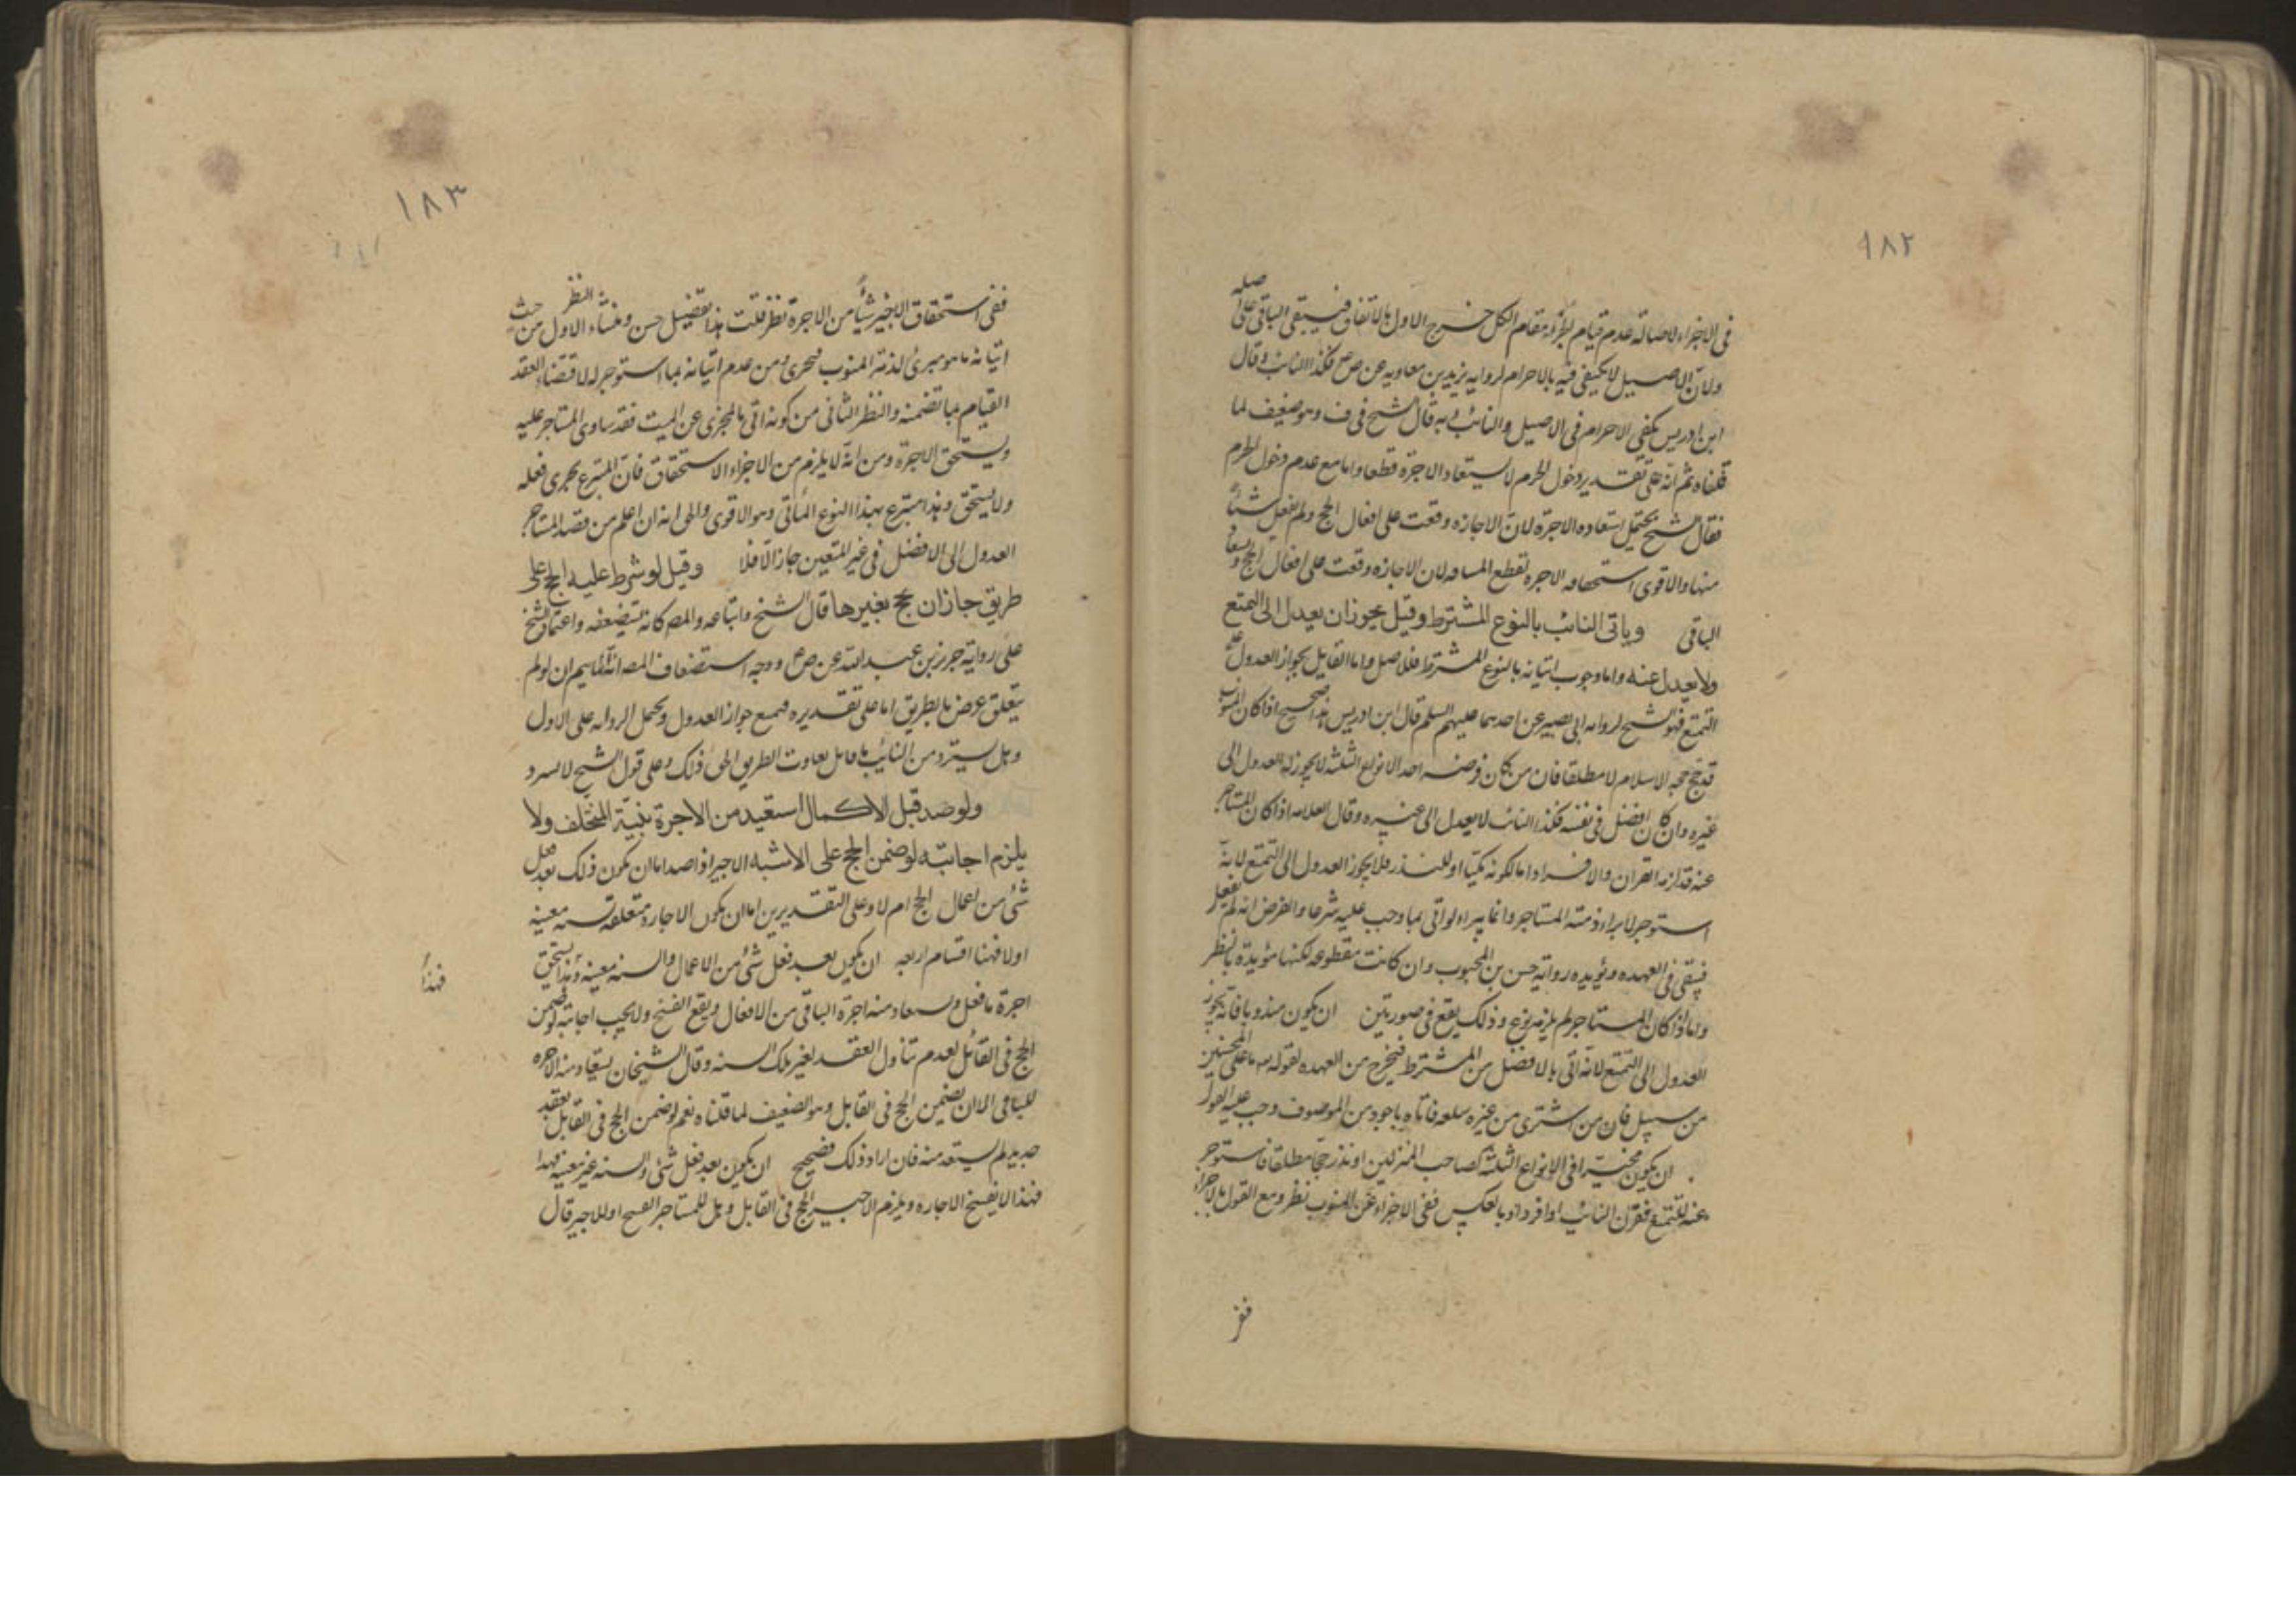 ١٨٢
فى الاجزاء لاصالة عدم قيام الجزء مقام الكل خرج الاول بالاتفاق فيبقى الباقى على اصله
ولان الاصيل لا يكتفى فيه بالاحرام لرواية بريد بن معاويه عن ص فكذا النائب وقال
ابن ادريس يكفى الاحرام فى الاصيل والنائب وبه قال الشيخ فى ف وهو ضعيف لما
قلناه ثم انه على تقدير دخول الحرم لا يستعاد الاجرة قطعا واما مع عدم دخول الحرم
فقال الشيخ يحتمل استعاده الاجرة لان الاجازه وقعت على افعال الحج ولم يفعل شيئا
منها والاقوى استحقاقه الاجره بقطع المسافه لان الاجازه وقعت على افعال الحج و
الباقى وياتى النائب بالنوع المشترط وقيل يجوز ان يعدل الى التمتع
ولا يعدل عنه واما وجوب اتيانه بالنوع المشترط فللاصل واما القايل بجواز العدول
التمتع فهو الشيخ لروايه ابى بصير عن احدهما عليهم السلم قال ابن ادريس هذا صحيح اذا كان المنوب
قد حج حجه الاسلام لا مطلقا فان من كان فرضه احد الانواع الثلثه لا يجوز له العدول الى
غيره وان كان افضل فى نفسه فكذا النائب لا يعدل الى غيره وقال العلامه اذا كان المستاجر
عنه قد لزمه القران والافراد اما لكونه مكيا او للنذر فلا يجوز العدول الى التمتع لانه
استوجر لابراء ذمته المستاجر وانما يبراء لو اتى بما وجب عليه شرعا والفرض انه لم يفعل
فيبقى فى العهده ويؤيده رواية حسن بن المحبوب وان كانت مقطوعه لكنها مؤيدة بالنظر
واما اذا كان المستاجر لم يلزمه نوع وذلك يقع فى صورتين ان يكون مندوبا فانه يجوز
العدول الى التمتع لانه اتى بالافضل من المشترط فيخرج من العهده لقوله تعه ما على المحسنين
من سبيل فان من اشترى من غيره سلعه فاتاه باجود من الموصوف وجب عليه القبول
ان يكون مخيرا فى الانواع الثلثه كصاحب المنزلين او نذر حجا مطلقا فاستوجر
عنه للتمتع فقرن النائب او افرد او بالعكس ففى الاجزاء عن المنوب نظر ومع القول بالاجزاء
ففى
١٨٣
ففى استحقاق الاجير شيئا من الاجرة نظر قلت هذا تفضيل حسن ومنشاء النظر الاول من حيث
اتيانه ما هو مبرئ لذمة المنوب فيجزى ومن عدم اتيانه بما استوجر له لاقتضاء العقد
القيام بما تضمنه والنظر الثانى من كونه اتى بالمجزى عن الميت فقد ساوى المستاجر عليه
ويستحق الاجرة ومن انه لا يلزم من الاجزاء الاستحقاق فان المتبرع يجزى فعله
ولا يستحق وهذا متبرع بهذا النوع الماتى وهو الاقوى والحق انه ان اعلم من قصد المستاجر
العدول الى الافضل فى غير المتعين جاز الا فلا وقيل لو شرط عليه الحج على
طريق جاز ان يحج بغيرها قال الشيخ واتباعه والمص كانه يستضعفه واعتماد الشيخ
على رواية حريز بن عبدالله عن ص ووجه استضعاف المص انه انما يسم ان لو لم
يتعلق غرض بالطريق اما على تقديره فيمنع جواز العدول ويحمل الروايه على الاول
وهل يسترد من النائب ما قابل تفاوت الطريق الحق ذلك وعلى قول الشيخ لا يسرد
ولو صد قبل الاكمال استعيد من الاجرة بنسبة المتخلف ولا
يلزم اجابته لو ضمن الحج على الاشبه الاجير اذا صد اما ان يكون ذلك بعد فعل
شئ من افعال الحج ام لا وعلى التقديرين اما ان يكون الاجاره متعلقه بسنه معينه
اولا فهنا اقسام اربعه ان يكون بعد فعل شئ من الاعمال والسنه معينه فهذا يستحق
فهذا
اجرة ما فعل ويستعاد منه اجرة الباقى من الافعال ويقع الفسخ ولا يجب اجابته لو ضمن
الحج فى القابل لعدم تناول العقد لغير تلك السنه وقال الشيخان يستعاد منه الاجره
للباقى الا ان يضمن الحج فى القابل وهو الضعيف لما قلناه نعم لو ضمن الحج فى القابل بعقد
جديد لم يستعد منه فان اراد ذلك فصحيح ان يكون بعد فعل شئ والسنه غير معينه فهذا
فهذا لا يفسخ الاجاره ويلزم الاجير الحج فى القابل وهل للمستاجر الفسخ او للاجير قال